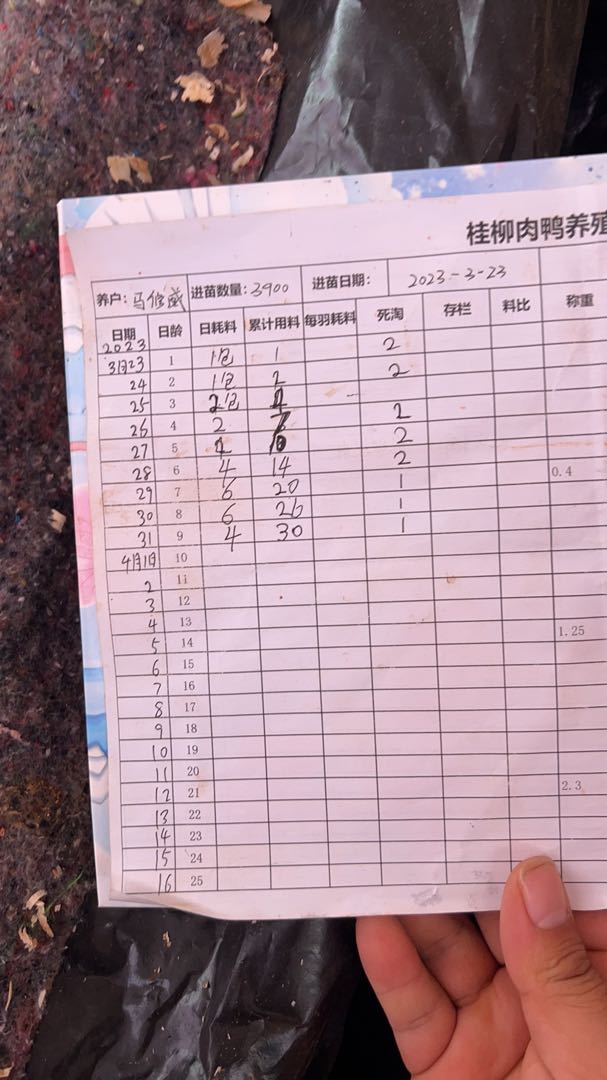 桂柳肉鸭养殖
养户: 马修威 进苗数量: 3900 进苗日期: 2023-3-23
日期 日龄 日耗料 累计用料 每羽耗料 死淘 存栏 料比 称重
2023
3月23 1 1包 1 2
24 2 1包 2 2
25 3 2包
26 4 2 2
27 5 2
28 6 4 14 2 0.4
29 7 6 20 1
30 8 6 26 1
31 9 4 30 1
4月1日 10
2 11
3 12
4 13
5 14 1.25
6 15
7 16
8 17
9 18
10 19
11 20
12 21 2.3
13 22
14 23
15 24
16 25